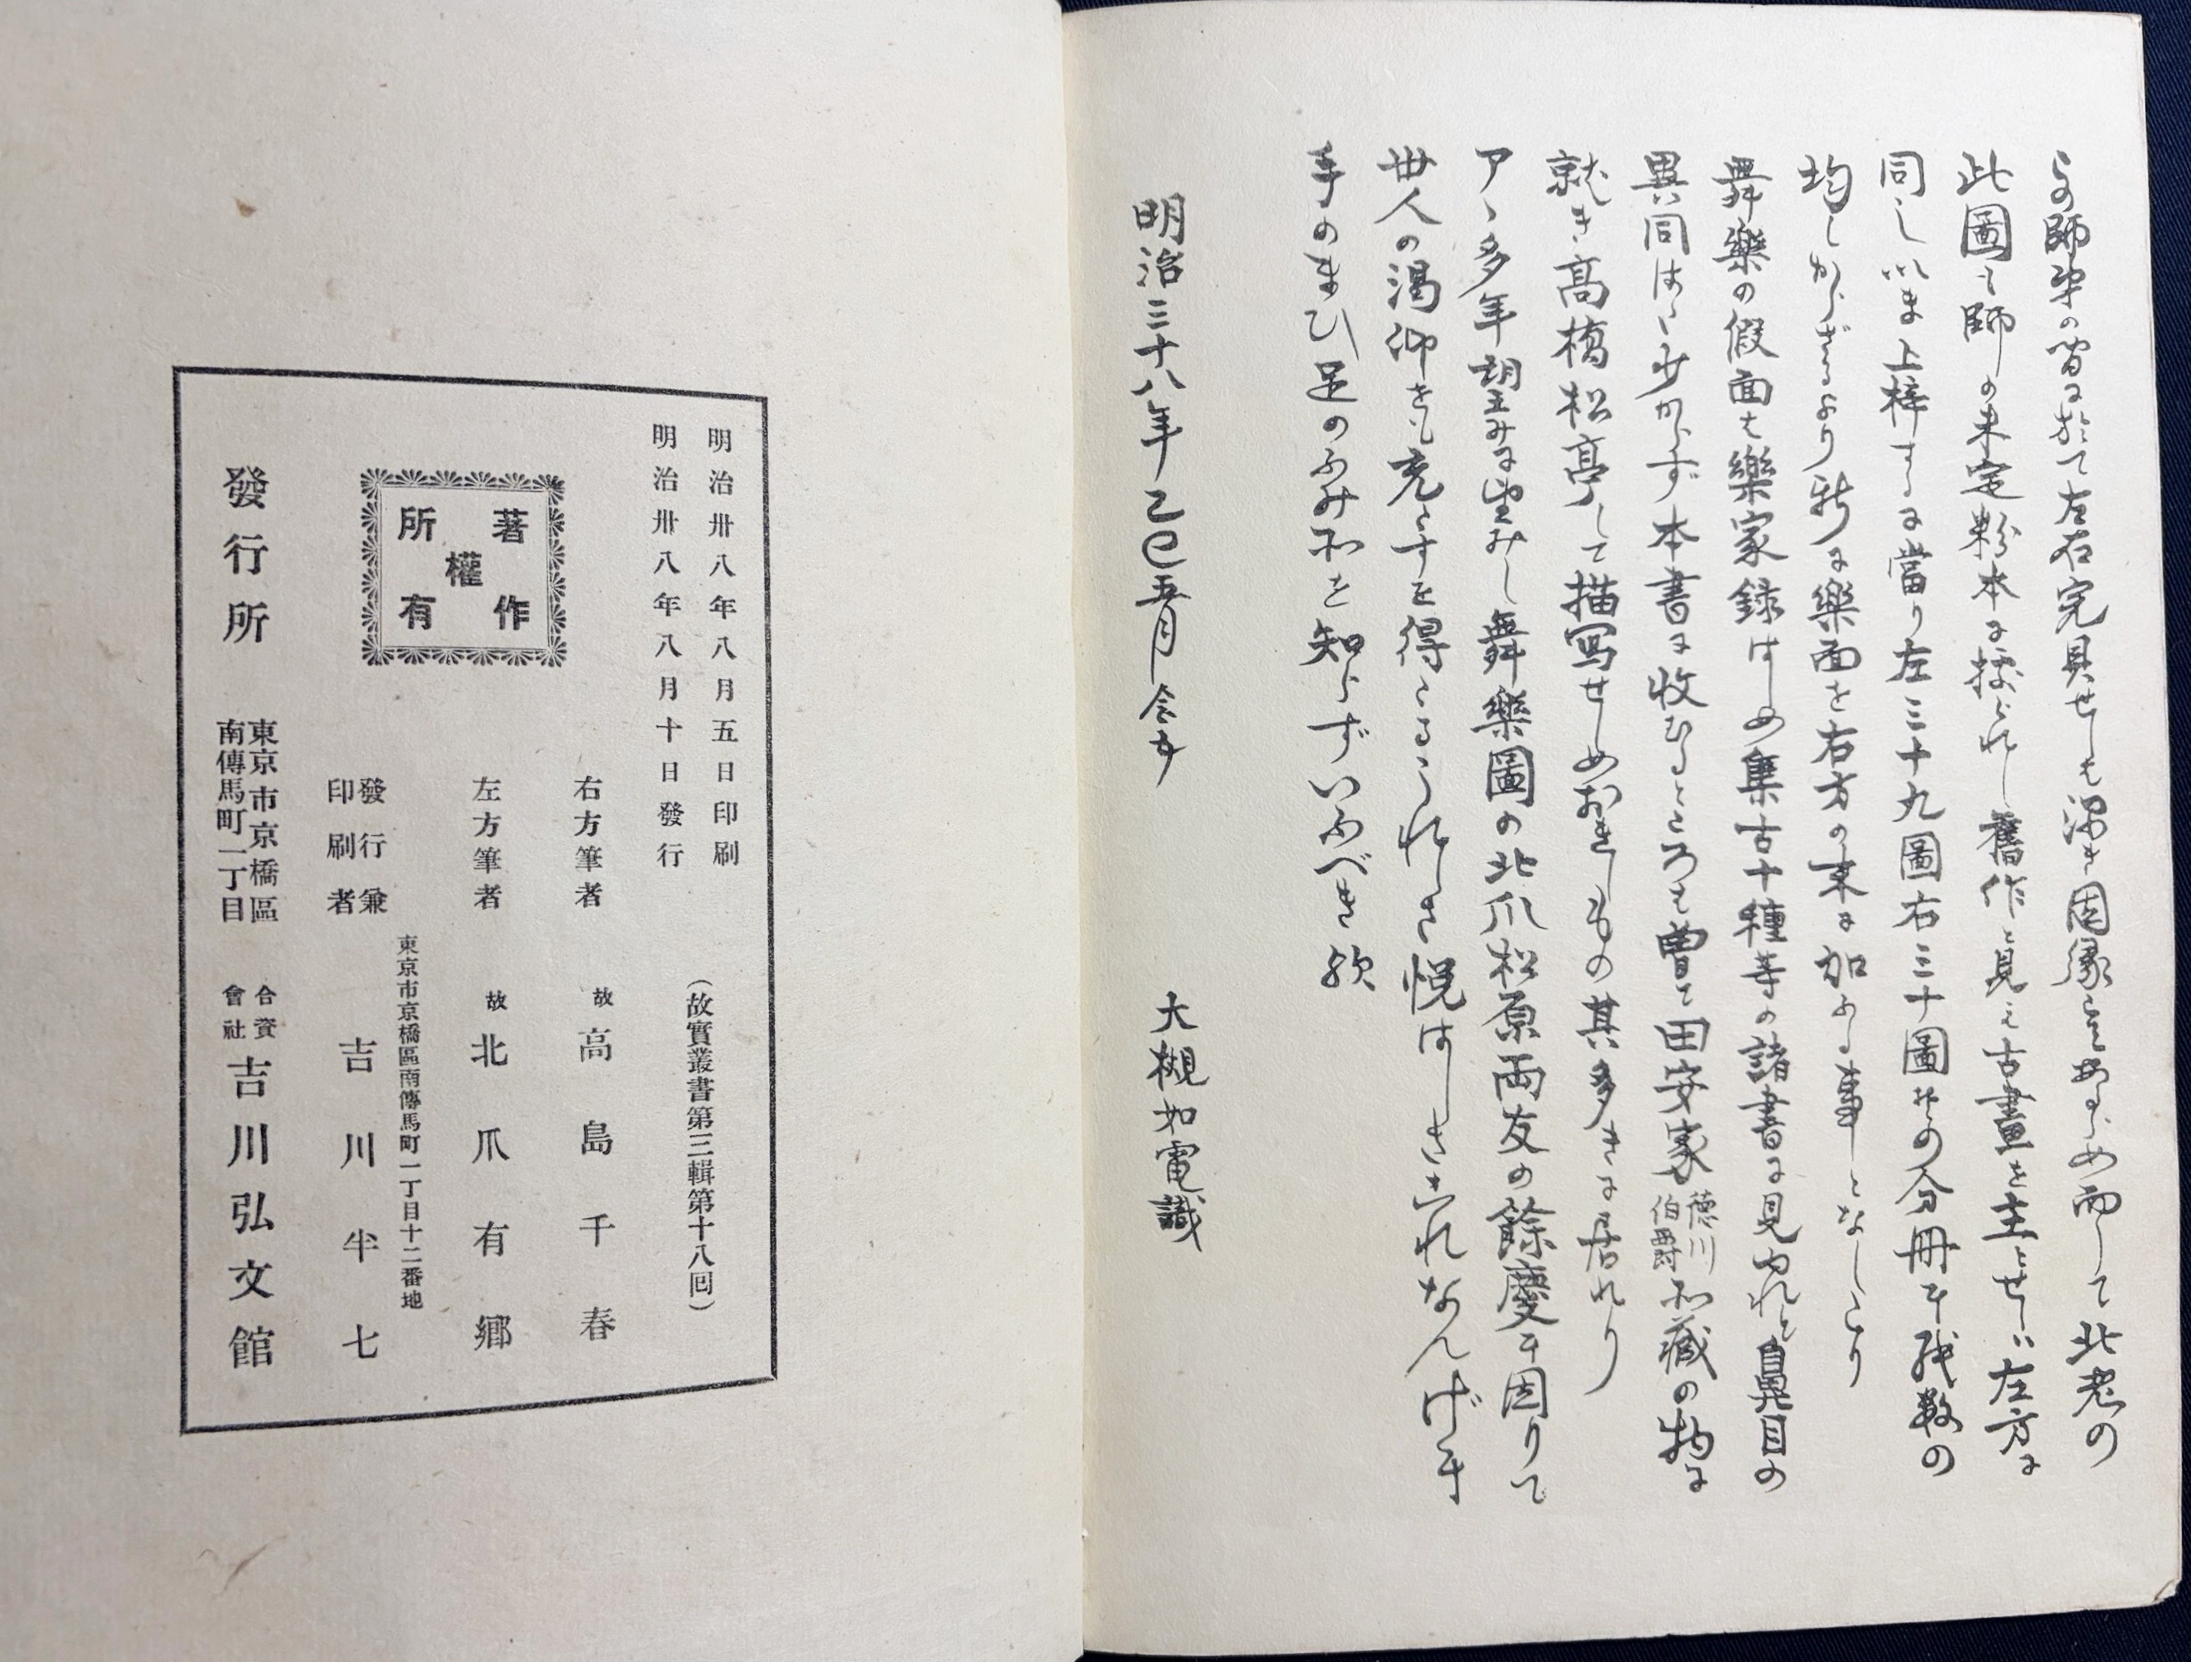 の師弟の間に於て左右完具せしも深き因縁と云あらめ而して北老の
此圖も師の未定粉本に據られし舊作と見え古畫を主とせしハ左方に
同しいま上梓するに當り左三十九圖右三十圖その分冊子残数の
均しからざるより新に樂面を右方の末に加ふる事となしたり
舞樂の假面も樂家録はしめ集古十種等の諸書に見ゆれと鼻目の
異同はた少からず本書に收むるところも曽て田安家徳川伯爵所藏の物に
就き高橋松亭して描写せしめおきしもの其多きに居れり
アヽ多年胡蝶みに望みし舞樂圖の北爪松原両友の餘慶に因りて
世人の渇仰をも充たすを得たるうれしさ悦はしさこれなんげに
手のまひ足のふみ所を知らずいふべき歟
明治三十八年乙巳五月念五
大槻如電識
明治卅八年八月五日印刷
明治卅八年八月十日發行
(故實叢書第三輯第十八回)
右方筆者 故 高島千春
左方筆者 故 北爪有郷
東京市京橋區南傳馬町一丁目十二番地
發行兼印刷者 吉川半七
著作權所有
發行所 東京市京橋區南傳馬町一丁目 合資會社 吉川弘文館